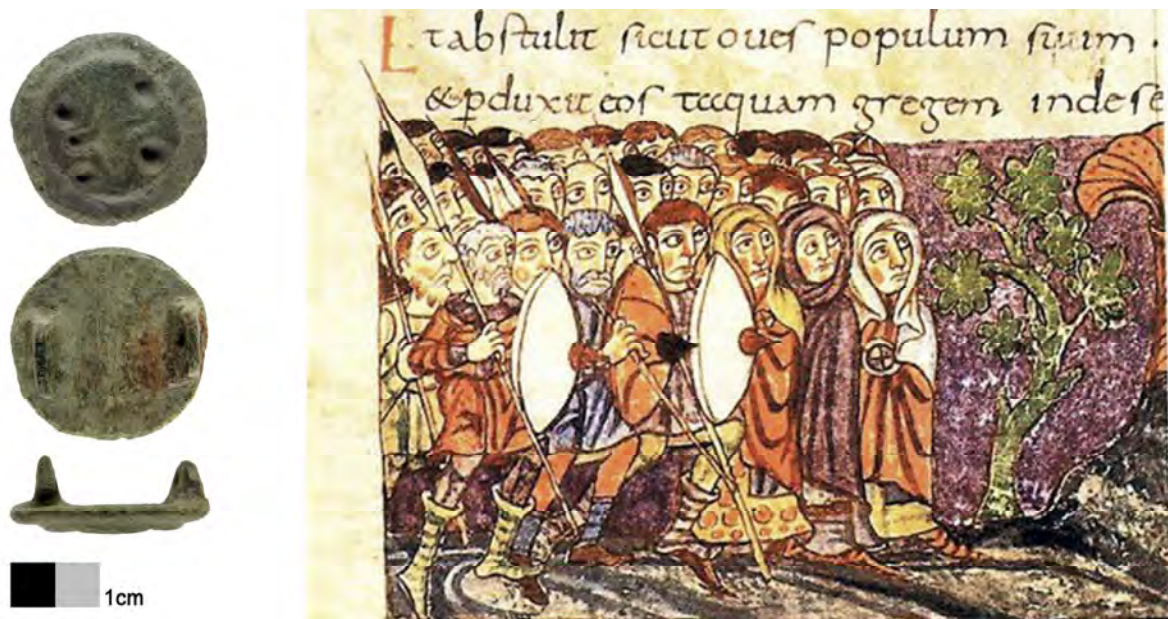 Et abstulit sicut oues populum suum .
& pduxit eos tacquam gregem indese
1cm